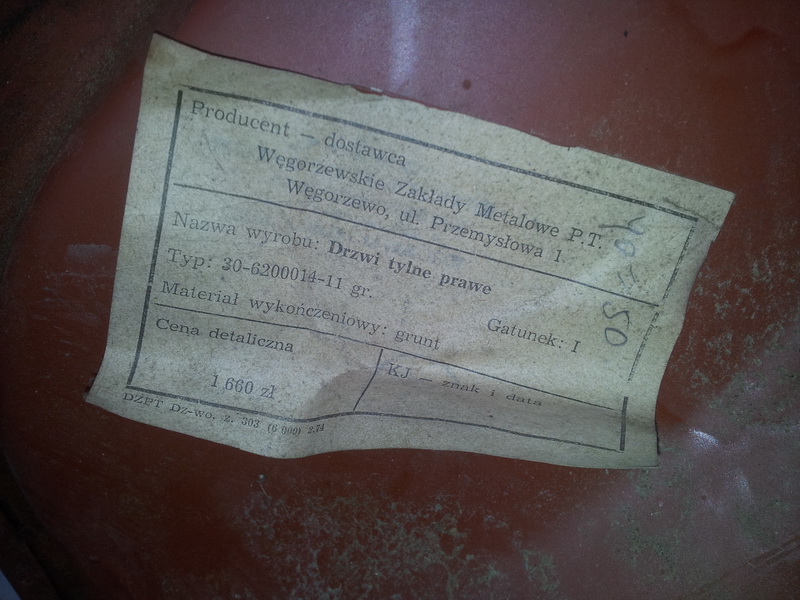 Producent — dostawca
Węgorzewskie Zakłady Metalowe P.T.
Węgorzewo, ul. Przemysłowa 1
Nazwa wyrobu: Drzwi tylne prawe
Typ: 30-6200014-11 gr. Gatunek: I
Materiał wykończeniowy: grunt
Cena detaliczna
1 660 zł
KJ — znak i data
DZPT Dz-wo, z. 303 (6 000) 2.74